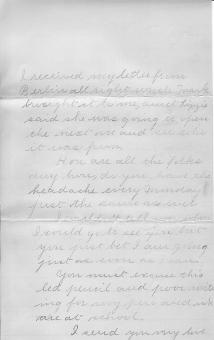 I received my letter from
Berlin all right uncle Frank
brought it to me, aunt Lizzie
said she was going to open
the next one and see who
it was from.
How are all the folks
very here, do you have the
headache every Sunday
just the same as
I tell you when
I would go to see you but
you just bet I am going
just as soon as I can.
You must excuse this
led pencil and poor writ
ing for my pen and ink
are at school.
I send you my love